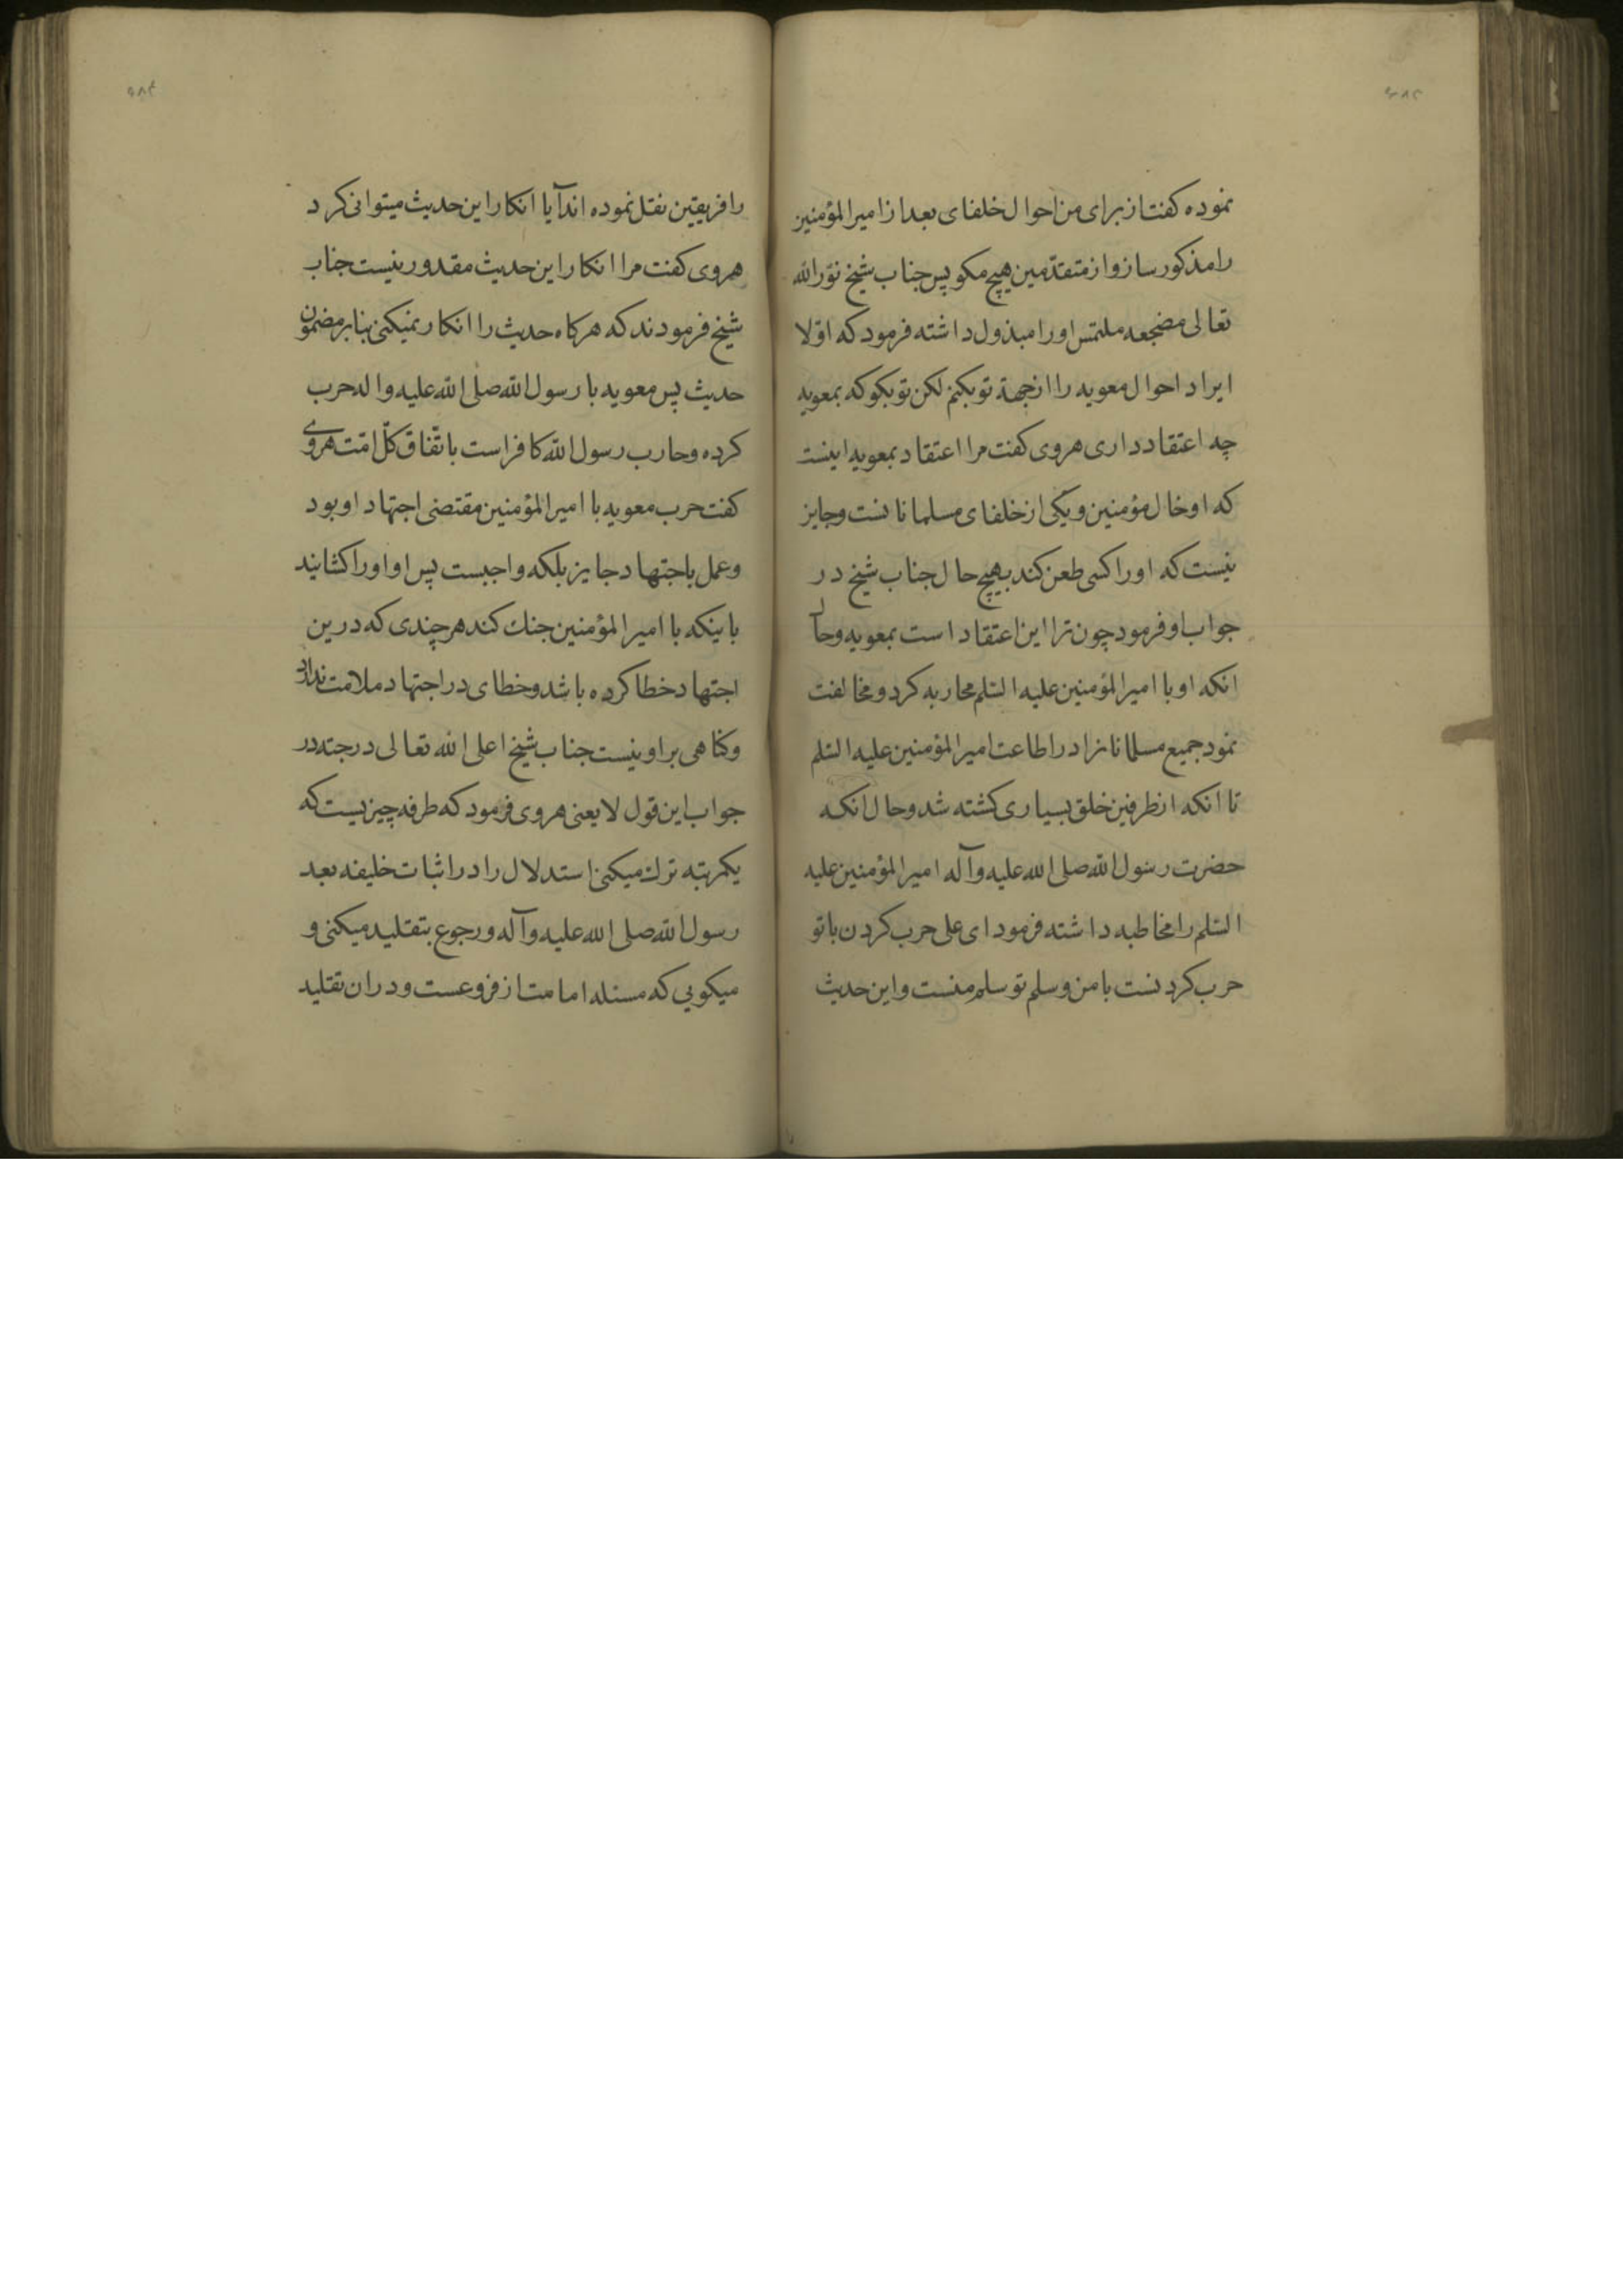 ۴۸۳
نموده كفت از برای من احوال خلفای بعد از امیرالمؤمنین
را مذكور ساز و از متقدّمین هیچ مكو پس جناب شیخ نوّرالله
تعالی مضجعه ملتمس او را مبذول داشته فرمود كه اوّلا
ایراد احوال معویه را از جهة تو بكنم لكن تو بكو كه بمعویه
چه اعتقاد داری هروی كفت مرا اعتقاد بمعویه اینست
كه او خال مؤمنین و یكی از خلفای مسلمانانست و جایز
نیست كه او را كسی طعن كند بهیچ حال جناب شیخ در
جواب او فرمود چون ترا این اعتقاد است بمعویه و حال
انكه او با امیرالمؤمنین علیه السّلم محاربه كرد و مخالفت
نمود جمیع مسلمانانرا در اطاعت امیرالمؤمنین علیه السّلم
تا انكه از طرفین خلق بسیاری كشته شد و حال انكه
حضرت رسول الله صلی الله علیه وآله امیرالمؤمنین علیه
السّلم را مخاطبه داشته فرمود ای علی حرب كردن با تو
حرب كردنست با من و سلم تو سلم منست و این حدیث
۴۸۴
را فریقین نقل نموده اند آیا انكار این حدیث میتوانی كرد
هروی كفت مرا انكار این حدیث مقدور نیست جناب
شیخ فرمودند كه هركاه حدیث را انكار نمیكنی بنابر مضمون
حدیث پس معویه با رسول الله صلی الله علیه واله حرب
كرده و حارب رسول الله كافر است باتّفاق كلّ امّت هروی
كفت حرب معویه با امیرالمؤمنین مقتضی اجتهاد او بود
و عمل باجتهاد جایز بلكه واجبست پس او او را كشانید
باینكه با امیرالمؤمنین جنك كند هرچندی كه درین
اجتهاد خطا كرده باشد و خطای در اجتهاد ملامت ندارد
و كناهی بر او نیست جناب شیخ اعلی الله تعالی درجته در
جواب این قول لایعنی هروی فرمود كه طرفه چیزیست كه
یكمرتبه ترك میكنی استدلال را در اثبات خلیفه بعد
رسول الله صلی الله علیه وآله و رجوع بتقلید میكنی و
میكویی كه مسئله امامت از فروعست و در ان تقلید